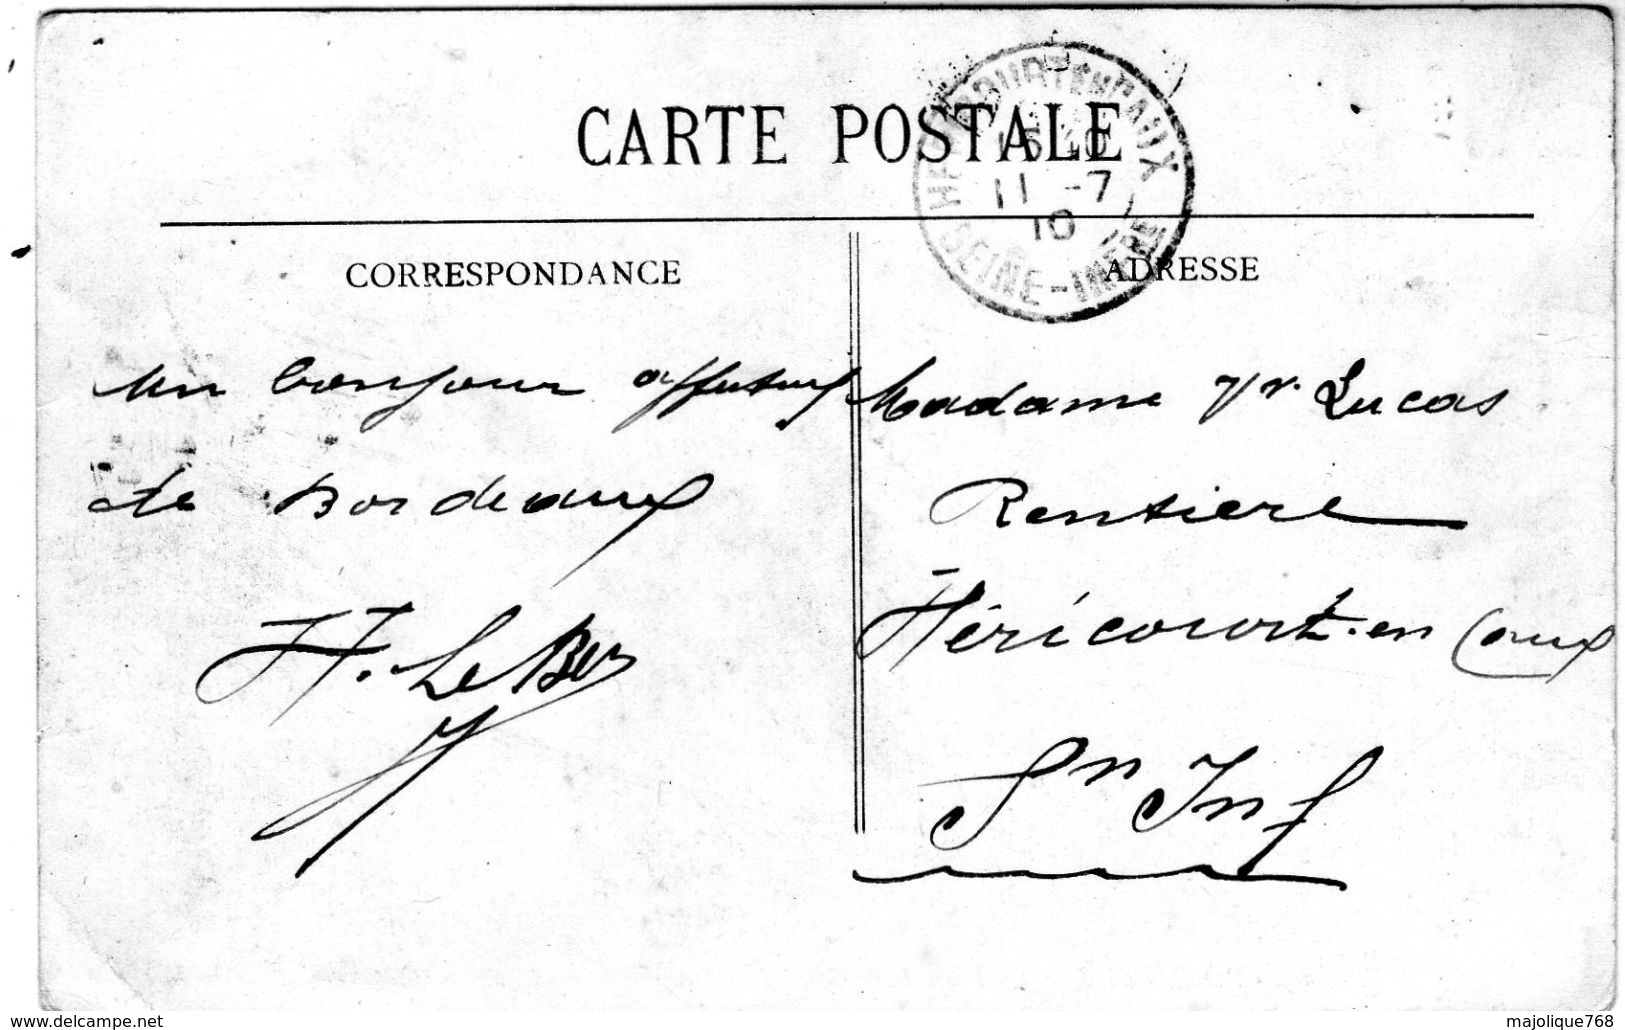 CARTE POSTALE
HÉRICOURT-EN-CAUX
11 -7
10
SEINE-INFRE
CORRESPONDANCE
ADRESSE
un bonjour affectueux
de Bordeaux
H. Le Ber
Madame Vve Lucas
Rentiere
Héricourt-en Caux
Sn Inf
www.delcampe.net
majolique768